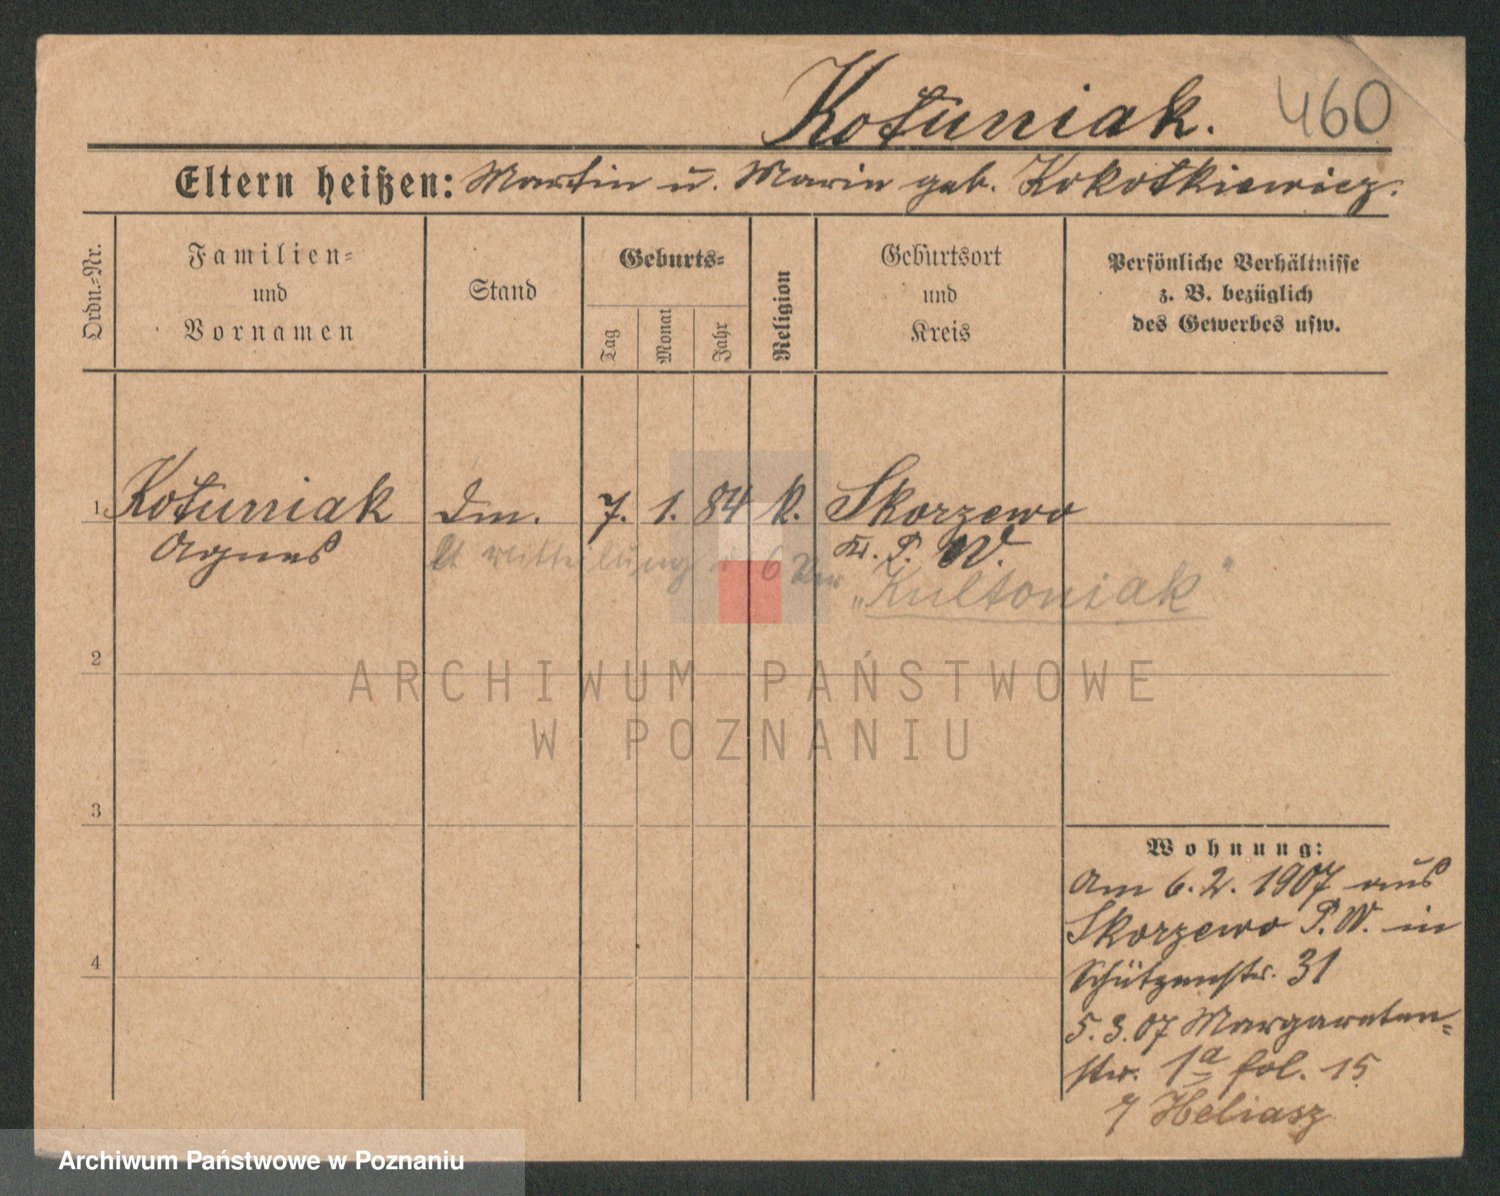 Kotuniak. 460
Eltern heißen: Martin u. Marie geb. Kokotkiewicz.
Ordn.-Nr.
Familien-
und
Vornamen
Stand
Geburts-
Tag
Monat
Jahr
Religion
Geburtsort
und
Kreis
Persönliche Verhältnisse
z. B. bezüglich
des Gewerbes usw.
1. Kotuniak Dm. 7. 1. 84 k. Skorzewo
Agnes Kr. P. W.
lt Mitteilung 6
„Kultoniak"
2
3
4
ARCHIWUM PAŃSTWOWE
W POZNANIU
Wohnung:
Am 6.2.1907 aus
Skorzewo P.W. in
Schützenstr. 31
5.3.07 Margareten-
str. 1a fol. 15
Heliasz
Archiwum Państwowe w Poznaniu